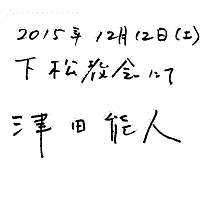 2015年 12月12日(土)
下松教会にて
津田能人